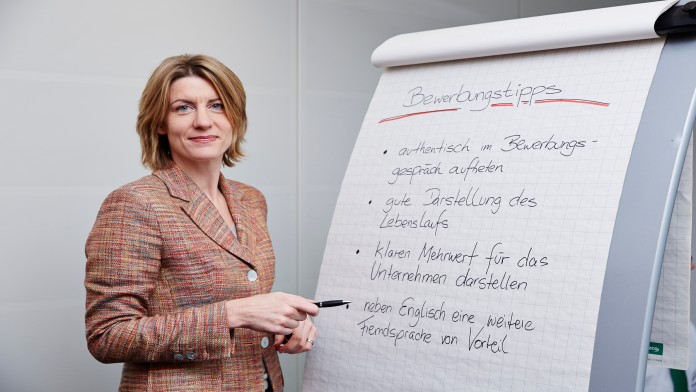 Bewerbungstipps
• authentisch im Bewerbungs-
gespräch auftreten
• gute Darstellung des
Lebenslaufs
• klaren Mehrwert für das
Unternehmen darstellen
• neben Englisch eine weitere
Fremdsprache von Vorteil